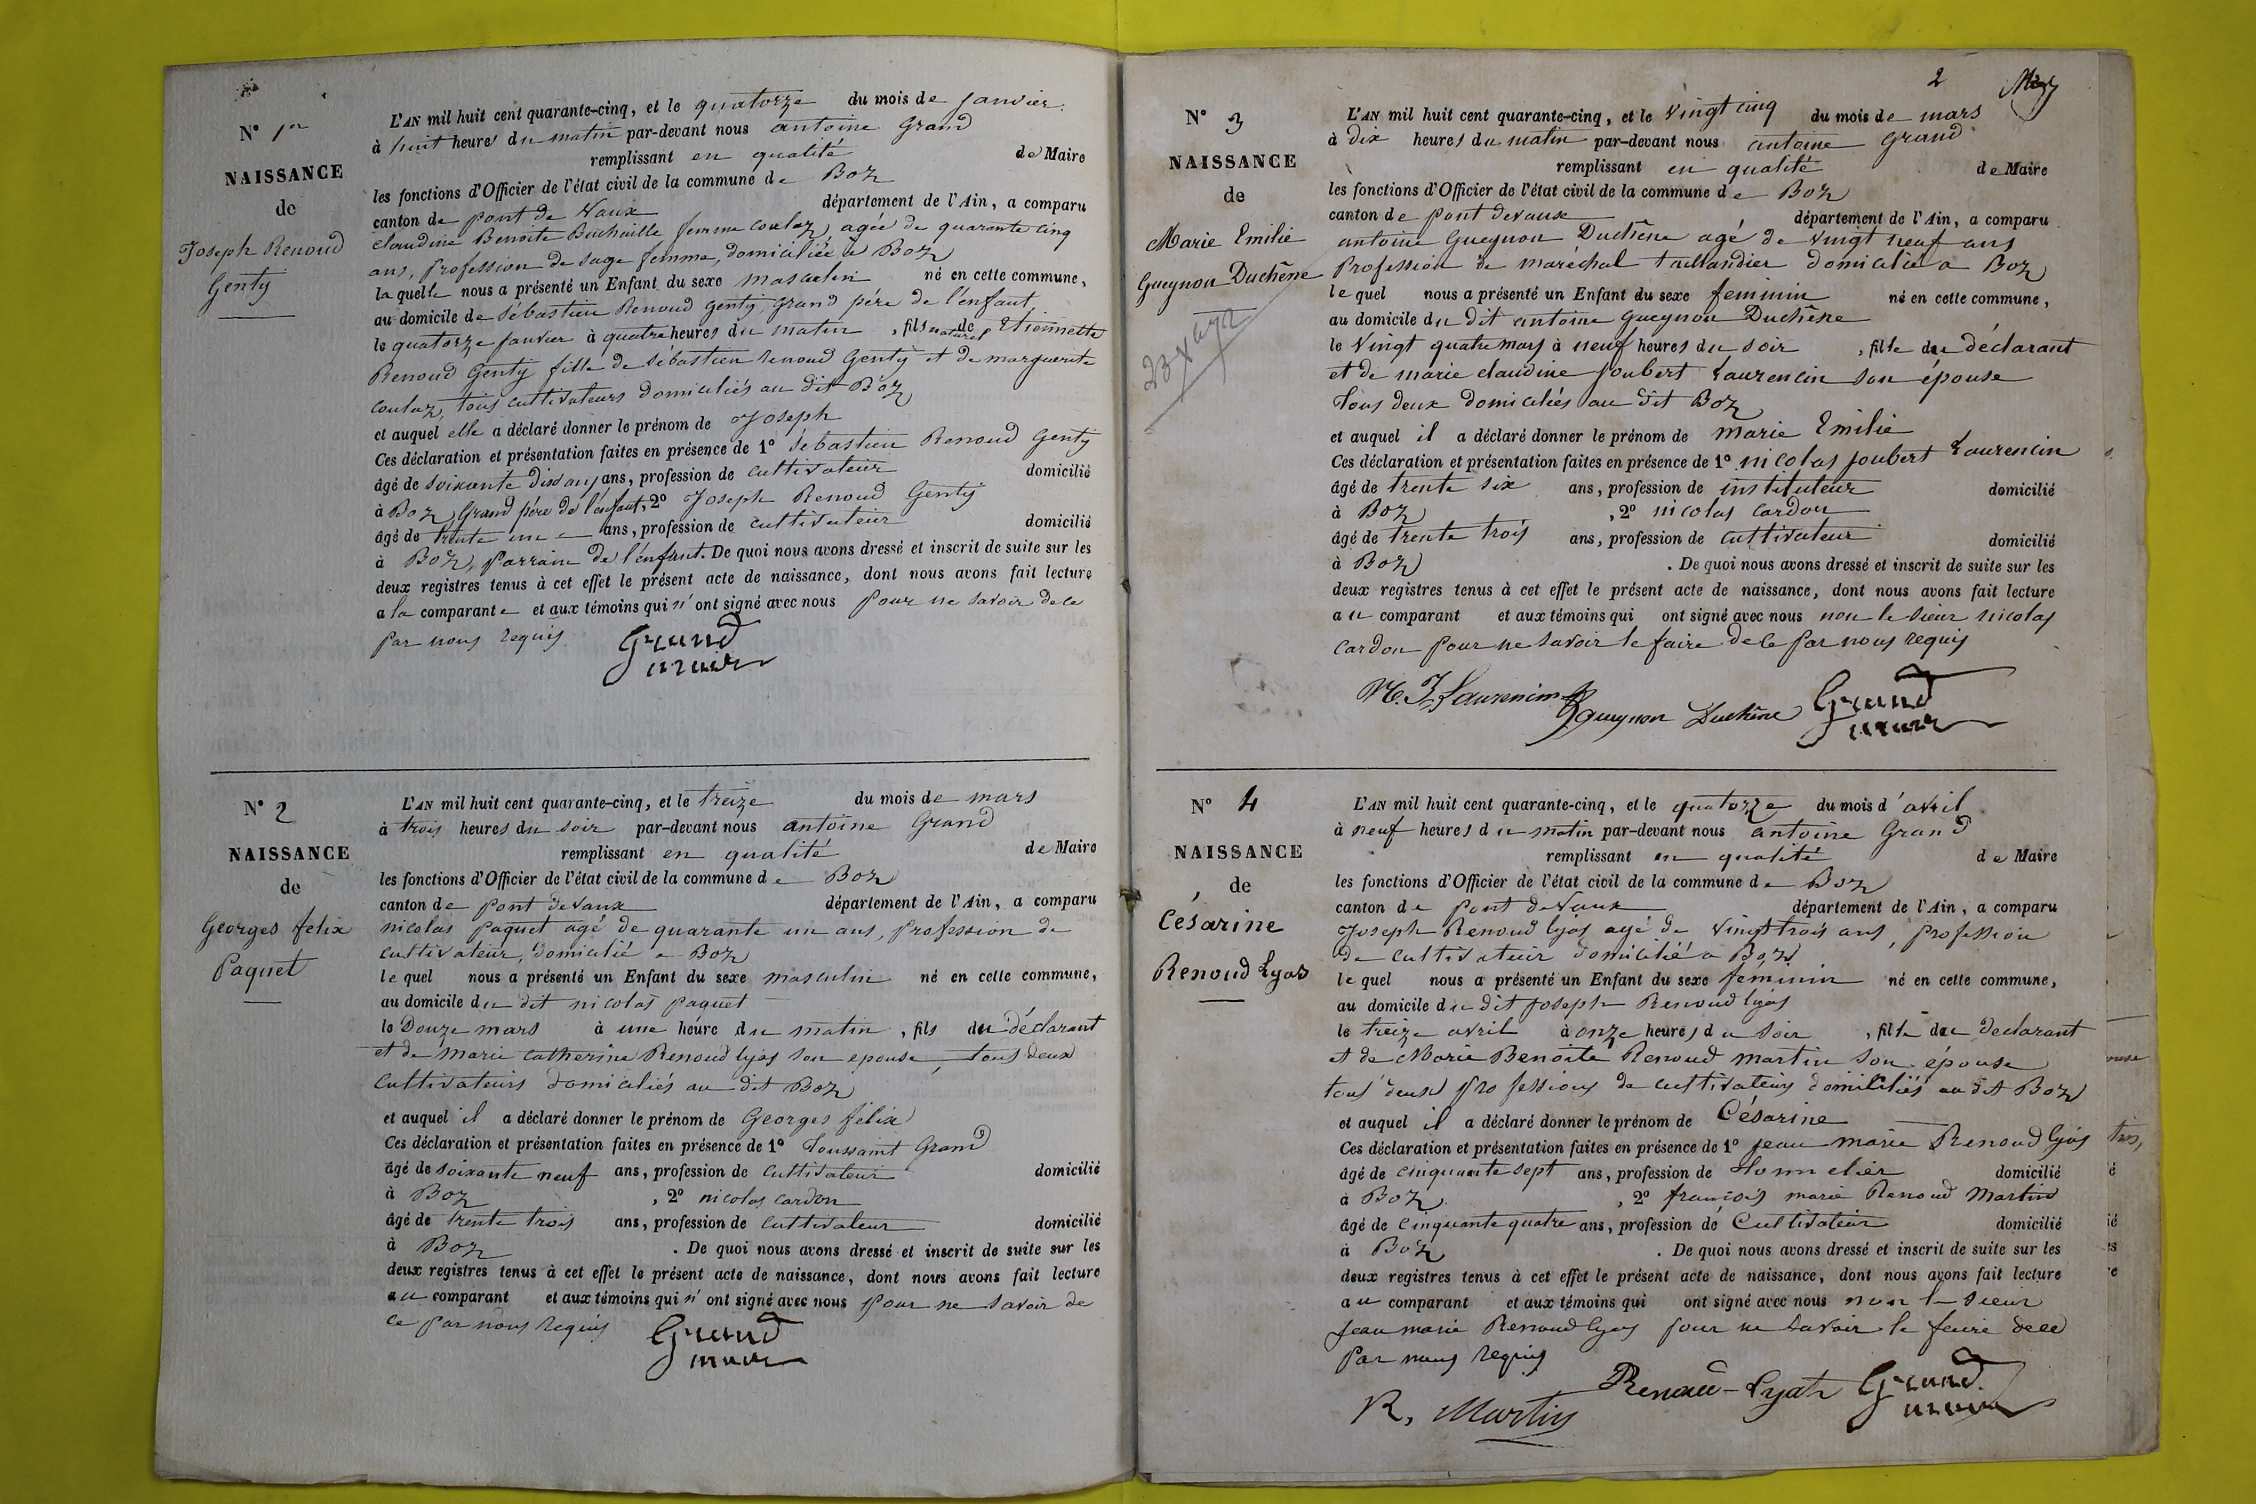 N° 1er
NAISSANCE
de
Joseph Renoud
Genty
L'AN mil huit cent quarante-cinq, et le quatorze du mois de janvier
à huit heures du matin par-devant nous antoine Grand
remplissant en qualité de Maire
les fonctions d'Officier de l'état civil de la commune de Boz
canton de pont de Vaux département de l'Ain, a comparu
claudine Benoite Buchaille femme coulaz, agée de quarante cinq
ans, profession de sage femme, domiciliée a Boz
la quelle nous a présenté un Enfant du sexe masculin né en cette commune,
au domicile de sébastien Renoud Genty, grand pére de l'énfant
le quatorze janvier à quatre heures du matin, fils naturel de Etiennette
Renoud Genty fille de sébastien renoud Genty et de marguerite
coulaz, tous cultivateurs domiciliés au dit Boz
et auquel elle a déclaré donner le prénom de Joseph
Ces déclaration et présentation faites en présence de 1° sébastien Renoud Genty
âgé de soixante dix ans, profession de cultivateur domicilié
à Boz, Grand pére de l'énfant, 2° Joseph Renoud Genty
âgé de trente un ans, profession de cultivateur domicilié
à Boz, parrain de l'énfant. De quoi nous avons dressé et inscrit de suite sur les
deux registres tenus à cet effet le présent acte de naissance, dont nous avons fait lecture
a la comparante et aux témoins qui n'ont signé avec nous pour ne savoir de ce
par nous requis
Grand
maire
N° 2
NAISSANCE
de
Georges felix
Paquet
L'AN mil huit cent quarante-cinq, et le treize du mois de mars
à trois heures du soir par-devant nous antoine Grand
remplissant en qualité de Maire
les fonctions d'Officier de l'état civil de la commune de Boz
canton de pont de Vaux département de l'Ain, a comparu
nicolas paquet agé de quarante un ans, profession de
cultivateur, domicilié a Boz
le quel nous a présenté un Enfant du sexe masculin né en cette commune,
au domicile du dit nicolas paquet
le Douze mars à une heure du matin, fils du déclarant
et de marie catherine Renoud lyas son epouse, tous deux
cultivateurs domiciliés au dit Boz
et auquel il a déclaré donner le prénom de Georges félix
Ces déclaration et présentation faites en présence de 1° Toussaint Grand
âgé de soixante neuf ans, profession de cultivateur domicilié
à Boz, 2° nicolas cardon
âgé de trente trois ans, profession de cultivateur domicilié
à Boz. De quoi nous avons dressé et inscrit de suite sur les
deux registres tenus à cet effet le présent acte de naissance, dont nous avons fait lecture
au comparant et aux témoins qui n'ont signé avec nous pour ne savoir de
ce par nous requis
Grand
maire
2
N° 3
NAISSANCE
de
Marie Emilie
Gueynon Duchêne
L'AN mil huit cent quarante-cinq, et le Vingt cinq du mois de mars
à dix heures du matin par-devant nous antoine Grand
remplissant en qualité de Maire
les fonctions d'Officier de l'état civil de la commune de Boz
canton de pont de vaux département de l'Ain, a comparu
antoine Gueynon Duchêne agé de vingt neuf ans
Profession de maréchal taillandier domicilié a Boz
le quel nous a présenté un Enfant du sexe feminin né en cette commune,
au domicile du dit antoine Gueynon Duchêne
le Vingt quatre mars à neuf heures du soir, fille du déclarant
et de marie claudine joubert Laurencin son épouse
Tous deux domiciliés au dit Boz
et auquel il a déclaré donner le prénom de Marie Emilie
Ces déclaration et présentation faites en présence de 1° nicolas joubert Laurencin
âgé de trente six ans, profession de instituteur domicilié
à Boz, 2° nicolas cardon
âgé de trente trois ans, profession de cultivateur domicilié
à Boz. De quoi nous avons dressé et inscrit de suite sur les
deux registres tenus à cet effet le présent acte de naissance, dont nous avons fait lecture
au comparant et aux témoins qui ont signé avec nous non le sieur nicolas
cardon pour ne savoir le faire de ce par nous requis
N. J. Laurencin
gueynon Duchêne
Grand
maire
N° 4
NAISSANCE
de
Césarine
Renoud Lyas
L'AN mil huit cent quarante-cinq, et le quatorze du mois d'avril
à neuf heures du matin par-devant nous antoine Grand
remplissant en qualité de Maire
les fonctions d'Officier de l'état civil de la commune de Boz
canton de pont de Vaux département de l'Ain, a comparu
Joseph Renoud lyas agé de vingt trois ans, profession
de cultivateur domicilié a Boz
le quel nous a présenté un Enfant du sexe feminin né en cette commune,
au domicile du dit joseph Renoud lyas
le treize avril à onze heures du soir, fille du déclarant
et de Marie Benoite Renoud martin son épouse
tous deux professions de cultivateurs domiciliés au dit Boz
et auquel il a déclaré donner le prénom de Césarine
Ces déclaration et présentation faites en présence de 1° jean marie Renoud lyas
âgé de cinquante sept ans, profession de tonnelier domicilié
à Boz, 2° françois marie Renoud Martin
âgé de cinquante quatre ans, profession de Cultivateur domicilié
à Boz. De quoi nous avons dressé et inscrit de suite sur les
deux registres tenus à cet effet le présent acte de naissance, dont nous avons fait lecture
au comparant et aux témoins qui ont signé avec nous non le sieur
jean marie Renoud lyas pour ne savoir le faire de ce
par nous requis
R, Martin
Renoud-Lyat
Grand
maire